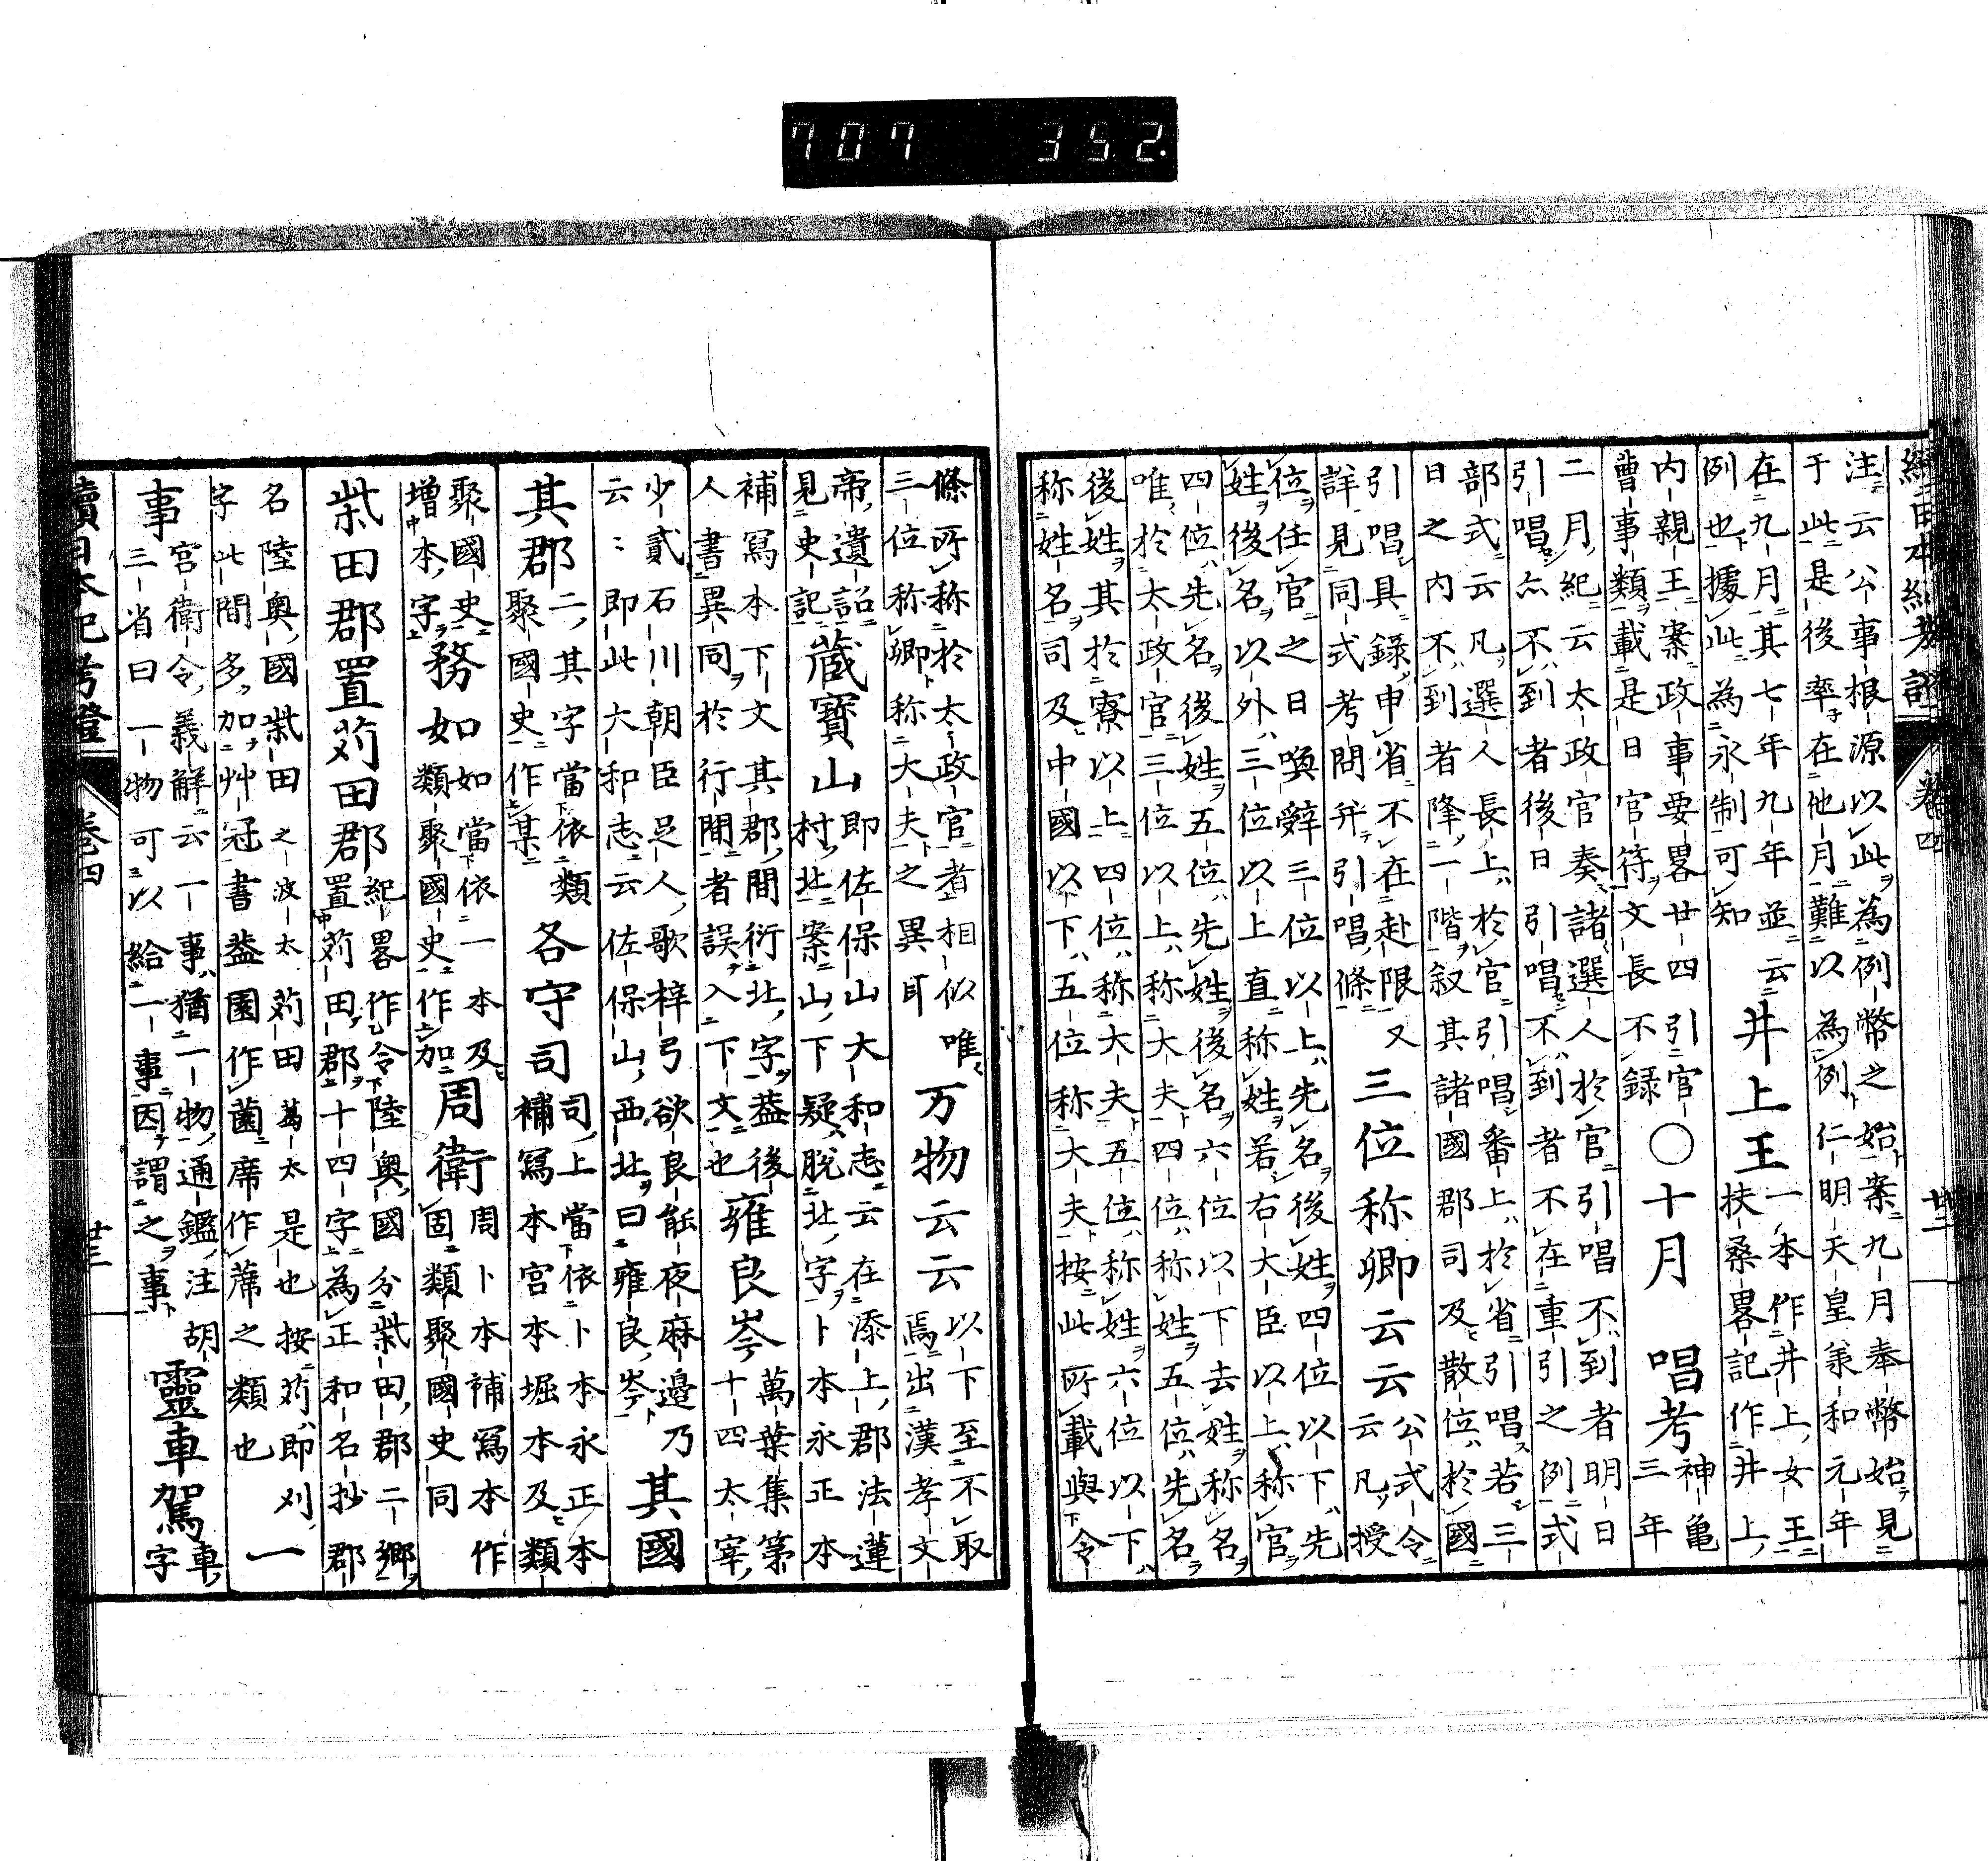 707 352.
續日本紀考證 卷四 廿二
注云公事根源以此為例幣之始案九月奉幣始見
于此是後率在他月難以為例仁明天皇承和元年
在九月其七年九年並云
例也據此為永制可知
井上王
一本作井上女王
扶桑畧記作井上
内親王案政事要畧廿四引官
曹事類載是日官符文長不録
○十月
唱考
神龜三年
二月紀云太政官奏諸選人於官引唱不到者明日
引唱亦不到者後日引唱不到者不在重引之例式
部式云凡選人長上於官引唱番上於省引唱若三
日之内不到者降一階叙其諸國郡司及散位於國
引唱具錄申省不在赴限又
詳見同式考問并引唱條
三位称卿云云
公式令云凡授
位任官之日喚辭三位以上先名後姓四位以下先
姓後名以外三位以上直称姓若右大臣以上称官
四位先名後姓五位先姓後名六位以下去姓称名
唯於太政官三位以上称大夫四位称姓五位先名
後姓其於寮以上四位称大夫五位称姓六位以下
称姓名司及中國以下五位称大夫按此所載與令
條所称於太政官者相似唯
三位称卿称大夫之異耳
万物云云
以下至不取
焉出漢孝文
帝遺詔
見史記
藏寶山
即佐保山大和志云在添上郡法蓮
村北案山下疑脫北字卜本永正本
補寫本下文其郡間衍北字蓋後
人書異同於行間者誤入下文也
雍良岑
萬葉集第
十四太宰
少貳石川朝臣足人歌梓弓欲良能夜麻邊乃
云云即此大和志云佐保山西北曰雍良岑
其國
其郡
二其字當依類
聚國史作某
各守司
司上當依卜本永正本
補寫本宮本堀本及類
聚國史
增本字
務如
如當依一本及
類聚國史作加
周衛
周卜本補寫本作
固類聚國史同
柴田郡置苅田郡
紀畧作令陸奥國分柴田郡二鄉
置苅田郡十四字為正和名抄郡
名陸奥國柴田之波太苅田葛太是也按苅即刈
字此間多加艸冠書蓋園作薗席作蓆之類也
一
事
宮衛令義解云一事猶一物通鑑注胡
三省曰一物可以給一事因謂之事
靈車駕
車字
續日本紀考證 卷四 廿三